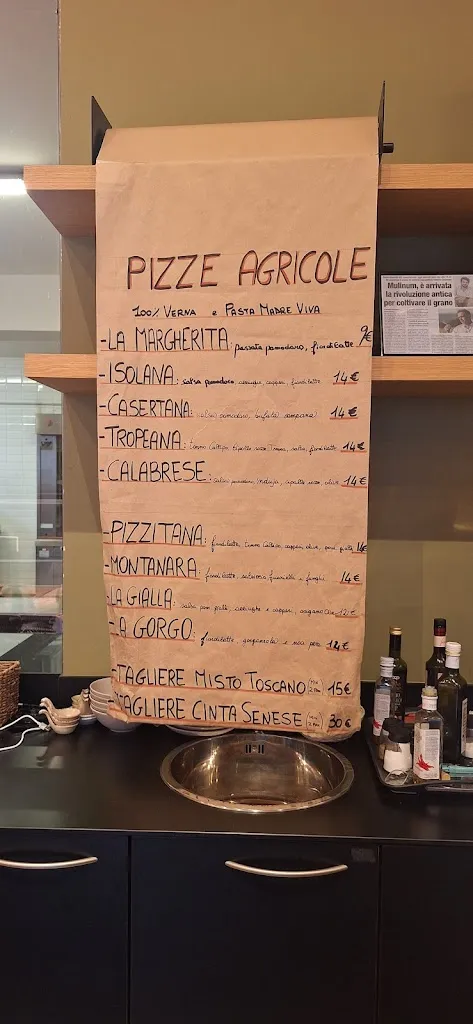 PIZZE AGRICOLE
100% VERNA e PASTA MADRE VIVA
-LA MARGHERITA: passata pomodoro, fiordilatte 9€
-ISOLANA: salsa pomodoro, acciughe, capperi, fiordilatte 14€
-CASERTANA: salsa pomodoro, bufala campana 14€
-TROPEANA: tonno, cipolla rossa Tropea, salsa, fiordilatte 14€
-CALABRESE: salsa pomodoro, 'nduja, cipolla rossa, olive 14€
-PIZZITANA: fiordilatte, tonno, capperi, olive, pom. gialli
-MONTANARA: fiordilatte, salsiccia, e funghi 14€
-LA GIALLA: salsa pom gialli, acciughe e capperi, 12€
-LA GORGO: fiordilatte, gorgonzola e noci pere 12€
-TAGLIERE MISTO TOSCANO 15€
-TAGLIERE CINTA SENESE 30€
Mulinum, è arrivata
la rivoluzione antica
per coltivare il grano